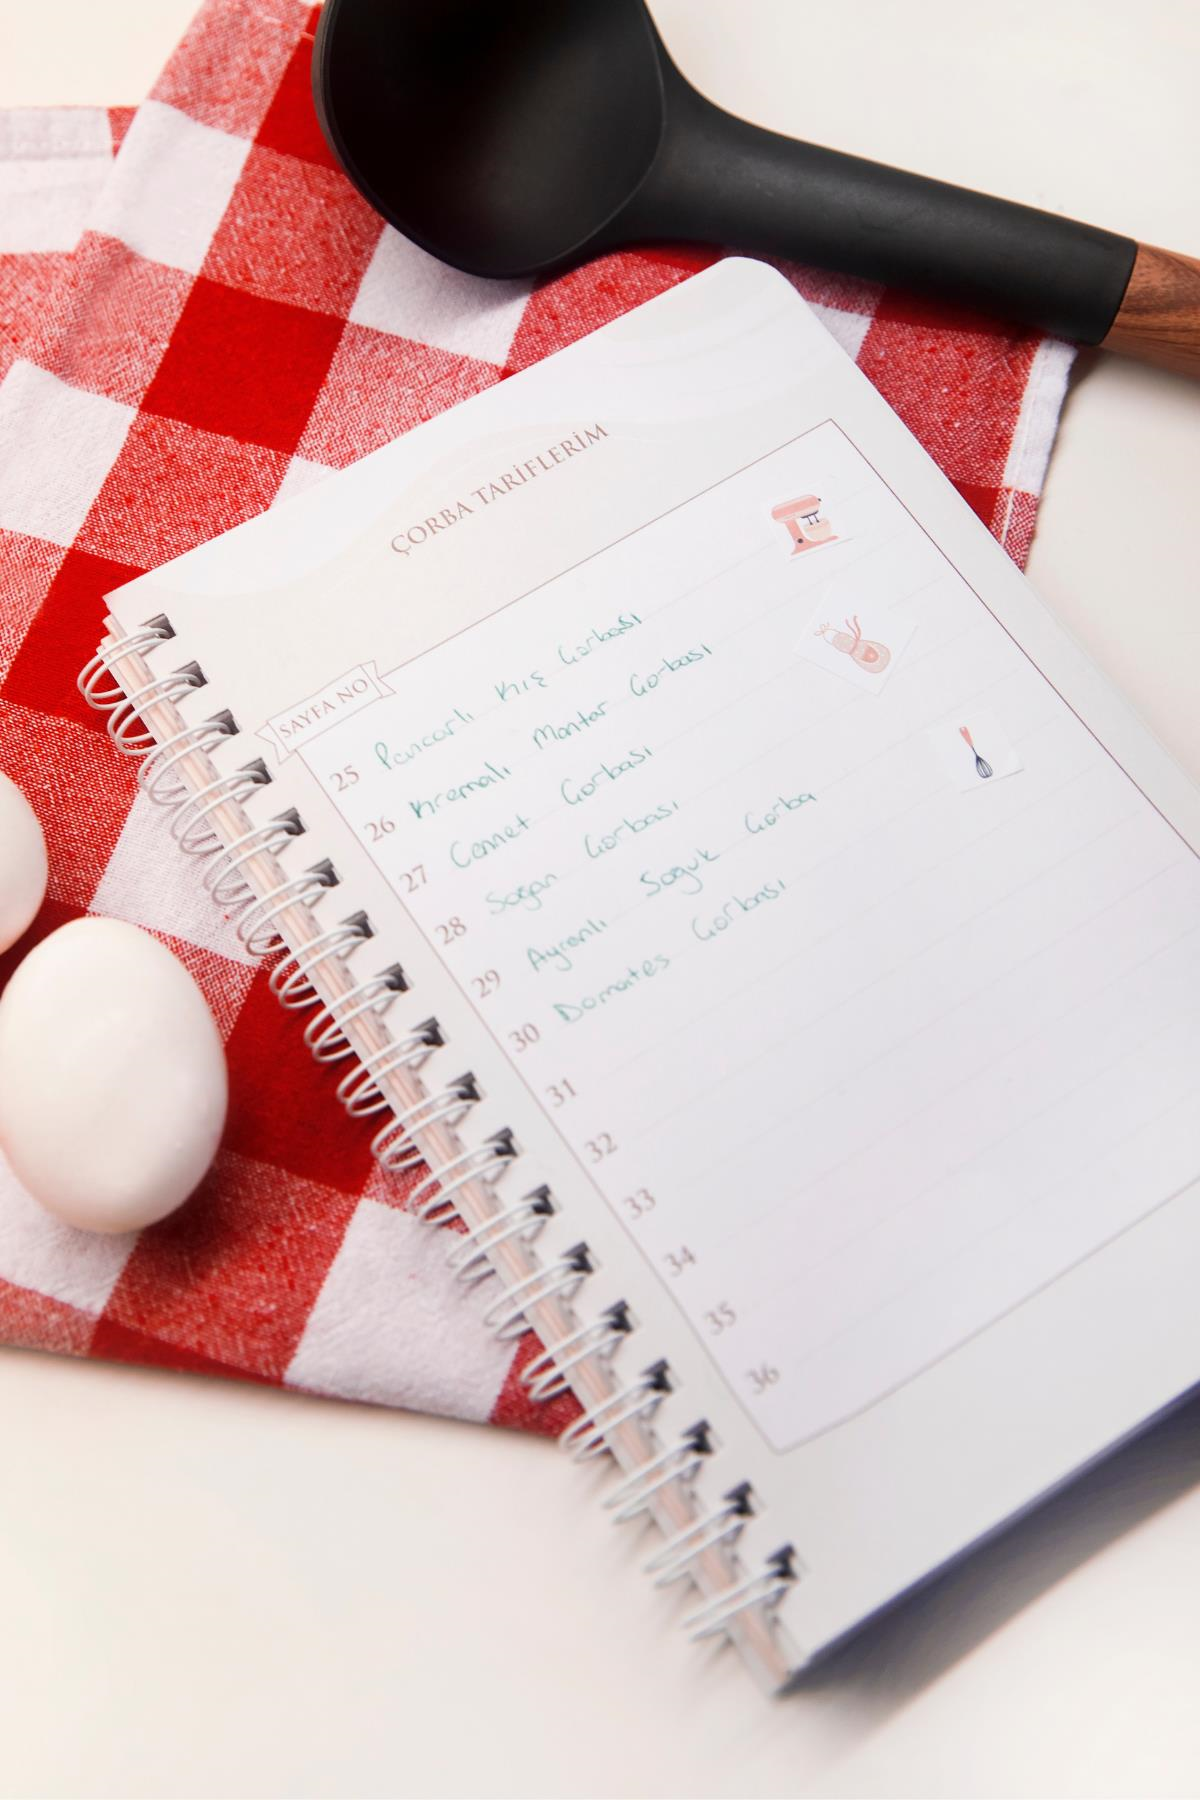 ÇORBA TARİFLERİM
SAYFA NO
25 Pancarlı Kış Çorbası
26 Kremalı Mantar Çorbası
27 Cennet Çorbası
28 Soğan Çorbası
29 Ayranlı Soğuk Çorba
30 Domates Çorbası
31
32
33
34
35
36